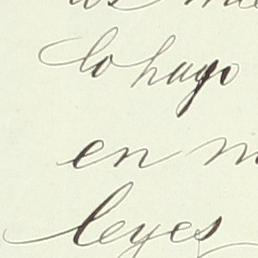 lo hago
en
leyes